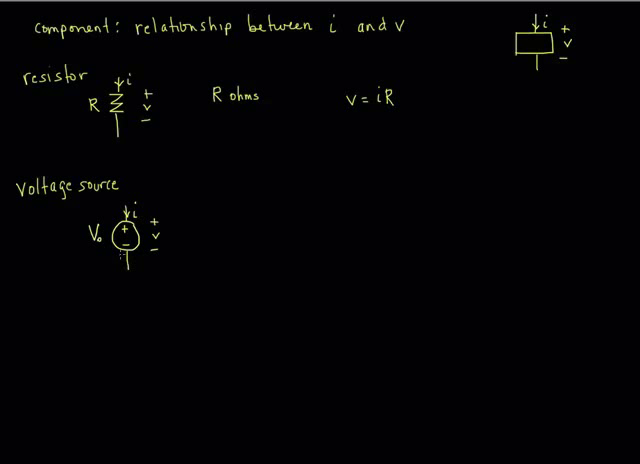 component: relationship between i and v
i
+
v
−
resistor
i
R
+
v
−
R ohms
v = iR
Voltage source
i
V₀
+
−
+
v
−